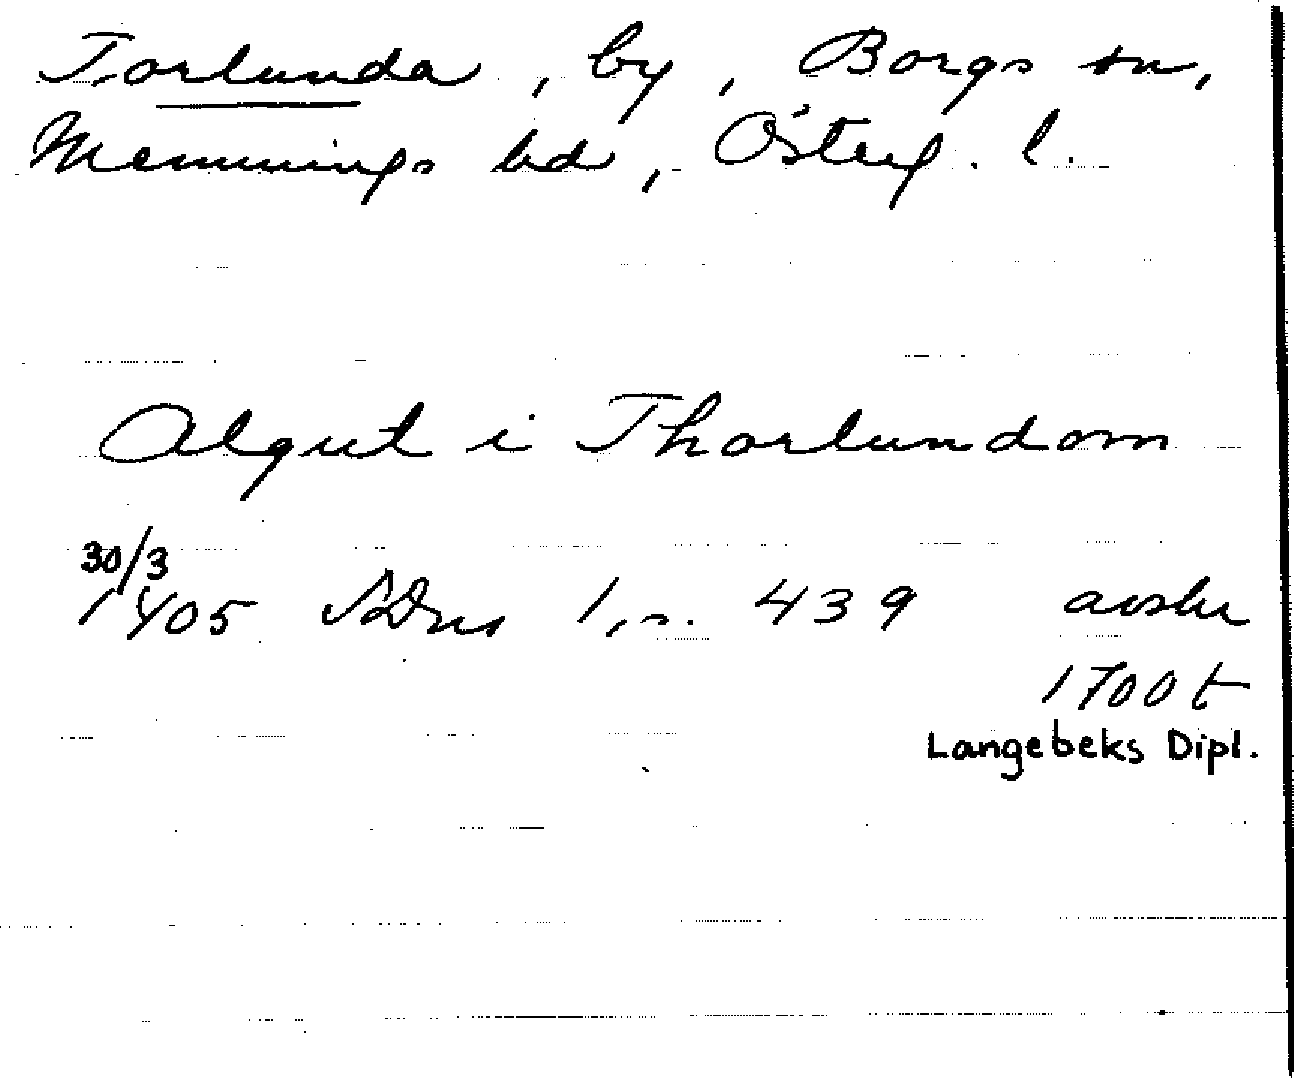 Torlunda, by, Borgs sn,
Memmings hd, Österg. l.
Algut i Thorlundom
30/3
1405 SDns 1, s. 439 avskr
1700 t
Langebeks Dipl.